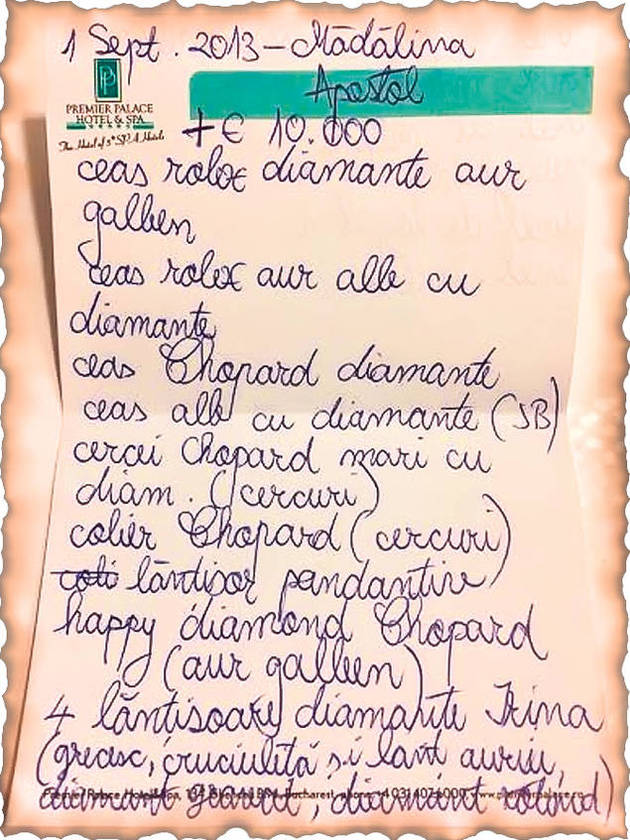 1 Sept. 2013 – Mădălina
Apostol
PREMIER PALACE
HOTEL & SPA
The Hotel of 5* SPA Hotels
+ € 10.000
ceas rolex diamante aur
galben
ceas rolex aur alb cu
diamante
ceas Chopard diamante
ceas alb cu diamante (JB)
cercei Chopard mari cu
diam. (cercuri)
colier Chopard (cercuri)
coli lăntisor pandantive
happy diamond Chopard
(aur galben)
4 lăntisoare diamante Irina
(grecesc, cruciulită si lant auriu,
diamant , diamant rotund)
Premier Palace Hotel Spa, Bucharest, phone: +4 031 407 6000, www.premierpalace.ro